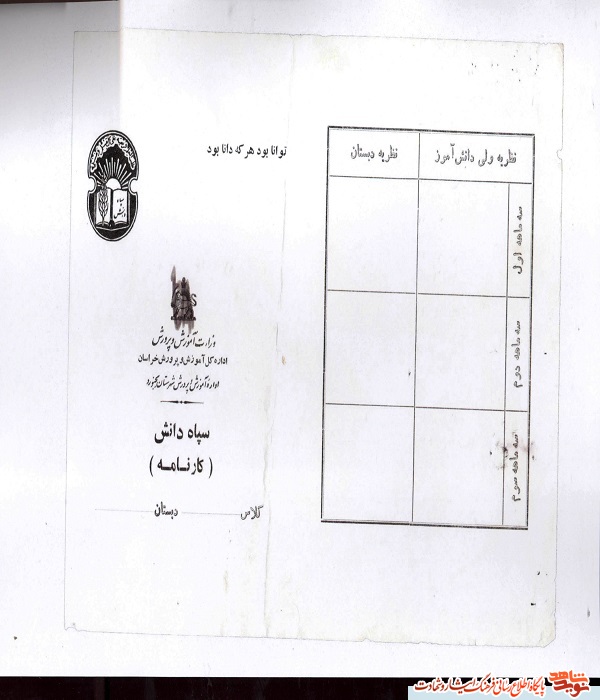 توانا بود هر که دانا بود
سپاه
دانش
وزارت آموزش و پرورش
اداره کل آموزش و پرورش خراسان
اداره آموزش و پرورش شهرستان بجنورد
سپاه دانش
( کارنامه )
کلاس دبستان
نظریه ولی دانش آموز نظریه دبستان
سه ماهه اول
سه ماهه دوم
سه ماهه سوم
نوید شاهد
پایگاه اطلاع رسانی فرهنگ ایثار و شهادت